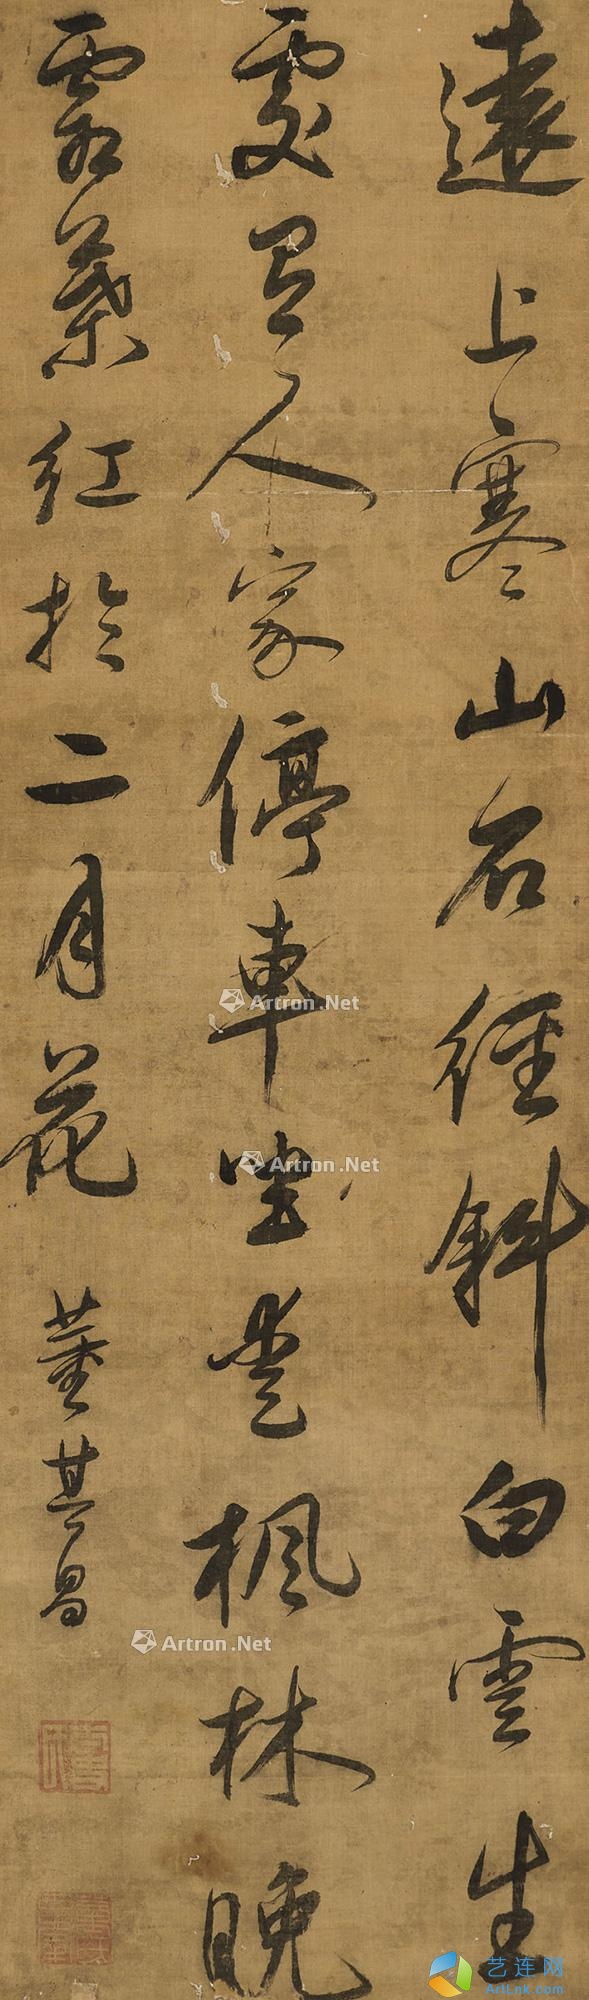 遠上寒山石徑斜白雲生
處有人家停車坐愛楓林晚
霜葉紅於二月花
董其昌
Artron.Net
Artron.Net
Artron.Net
艺连网
ArtLnk.Com